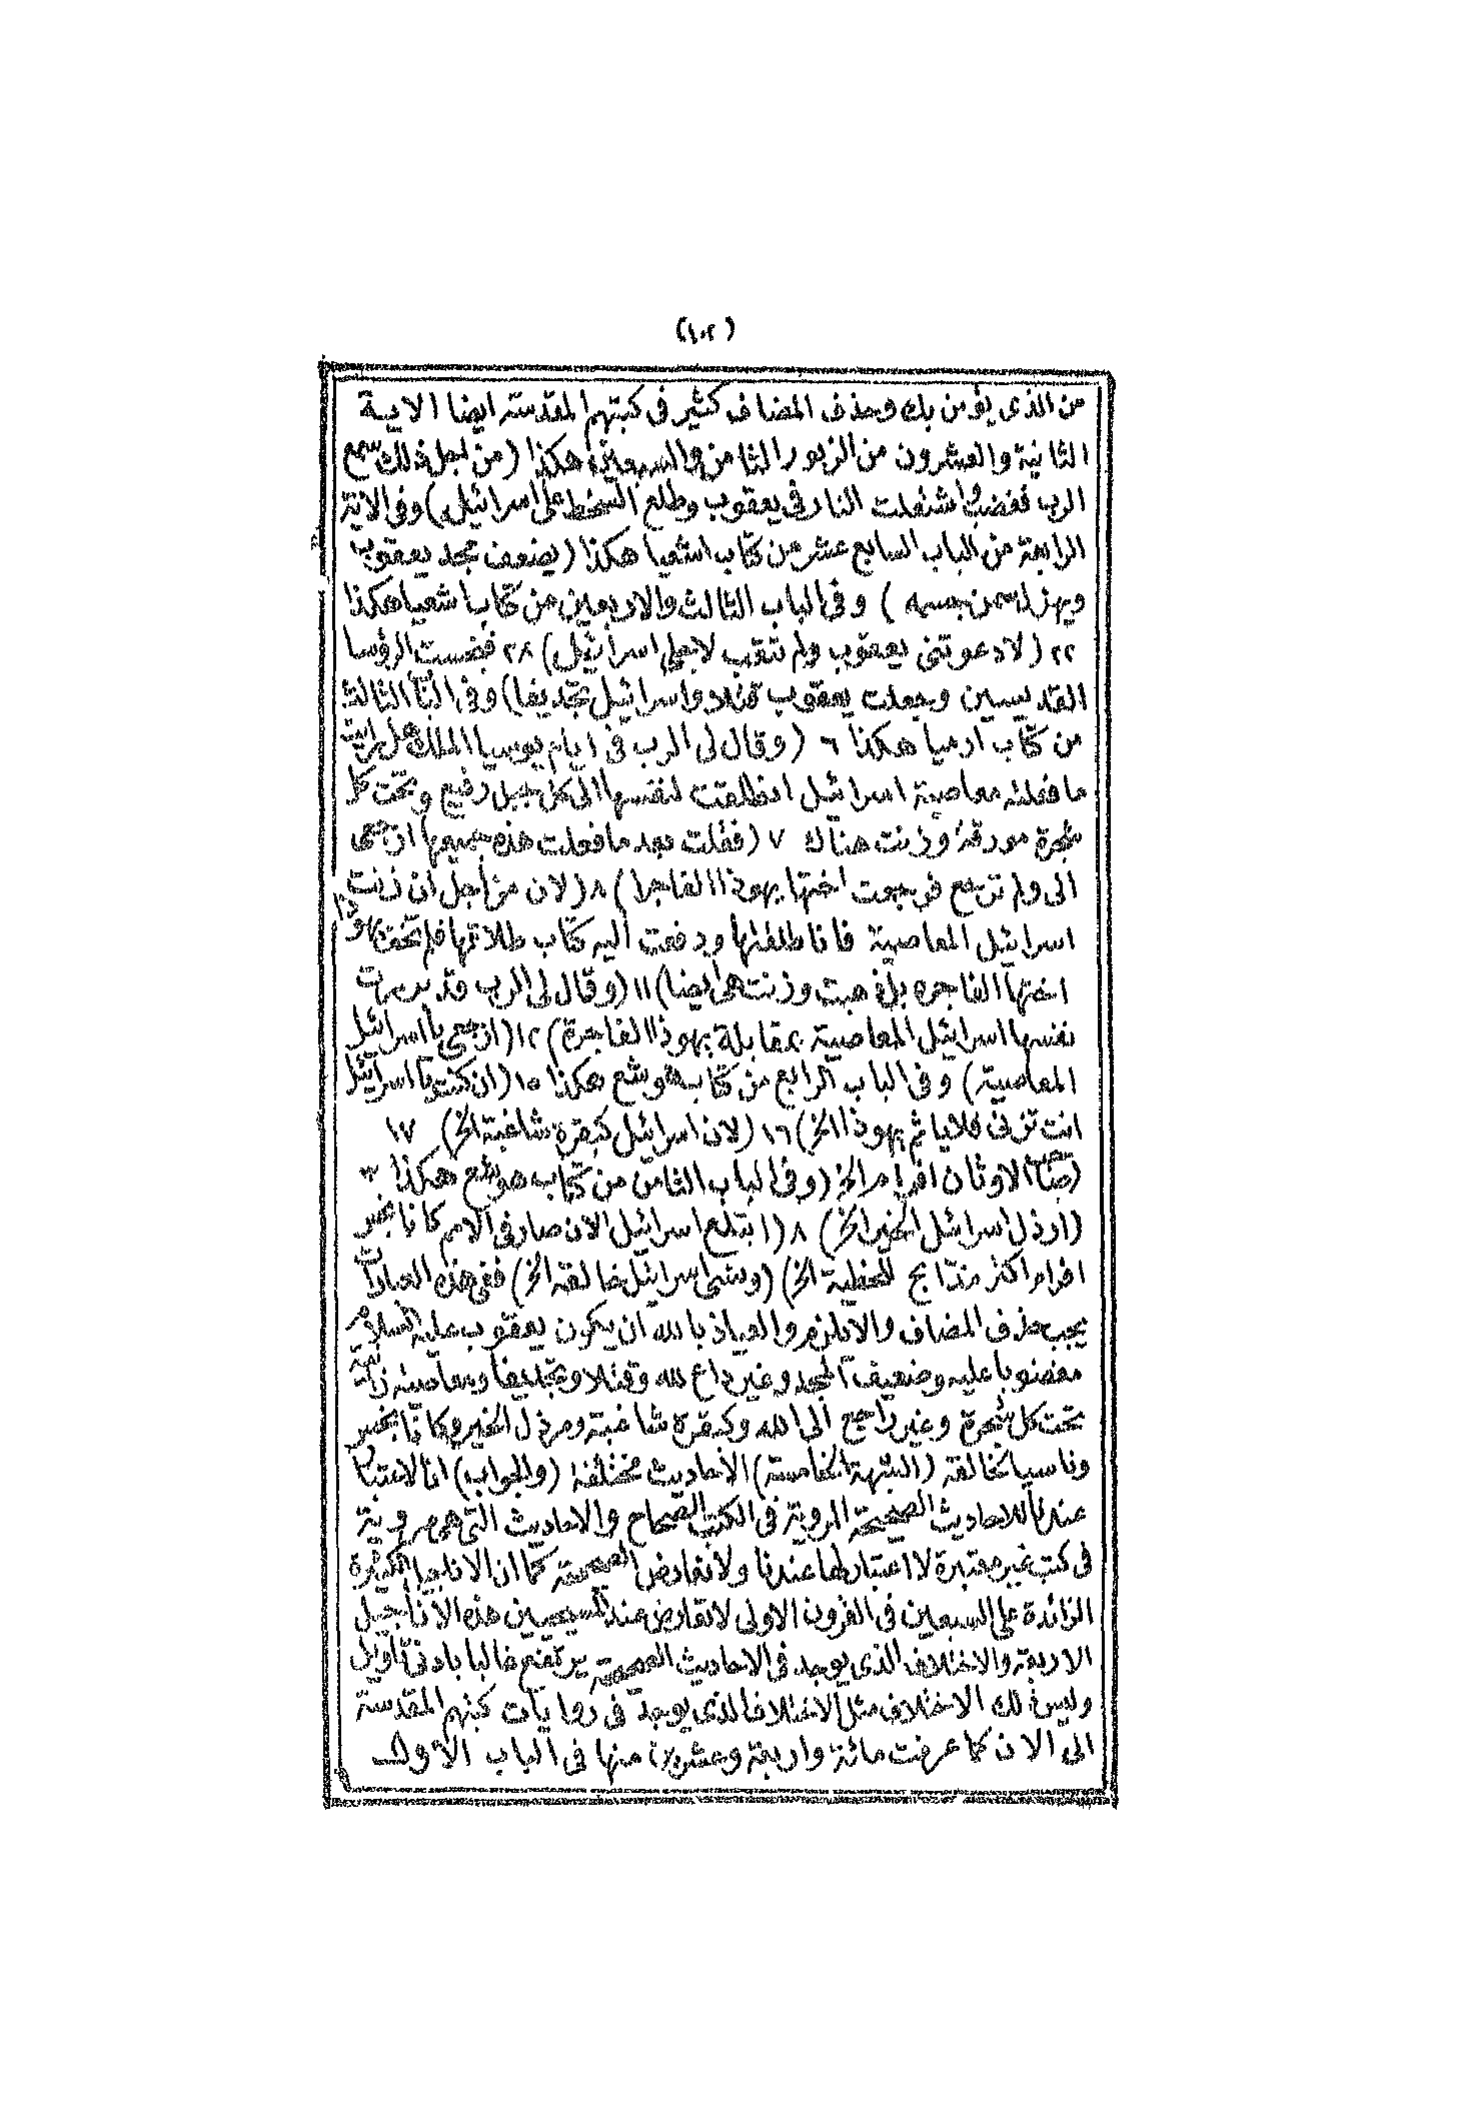 (١٠٢)
من الذى يؤمن بك وحذف المضاف كثير فى كتبهم المقدسة ايضا الاية
الثانية والعشرون من الزبور الثامن والسبعين هكذا (من اجل ذلك سمع
الرب فغضب واشتعلت النار فى يعقوب وطلع السخط على اسرائيل) وفى الاية
الرابعة من الباب السابع عشر من كتاب اشعيا هكذا (يضعف مجد يعقوب
ويهزل سمن جسمه ) وفى الباب الثالث والاربعين من كتاب اشعيا هكذا
٢٢ (لا دعوتنى يعقوب ولم تتعب لاجلى اسرائيل) ٢٨ فنجست الرؤسا
القديسين وجعلت يعقوب قتلا واسرائيل تجديفا) وفى الباب الثالث
من كتاب ارميا هكذا ٦ (وقال لى الرب فى ايام يوسيا الملك هل رايت
ما فعلته معاصية اسرائيل انطلقت لنفسها الى كل جبل رفيع وتحت كل
شجرة مورقة وزنت هناك ٧ (فقلت بعد ما فعلت هذه جميعها ارجعى
الى ولم ترجع فرجعت اختها يهوذا الفاجرا) ٨ (لان من اجل ان زنت
اسرائيل المعاصية فانا طلقتها ودفعت اليه كتاب طلاقها فلم تخف يهوذا
اختها الفاجره بل ذهبت وزنت هى ايضا) ١١ (وقال لى الرب قد بررت
نفسها اسرائيل المعاصية بمقابلة يهوذا الفاجرة) ١٢ (ارجعى يا اسرائيل
المعاصية) وفى الباب الرابع من كتاب هوشع هكذا ١٥ (ان كنت يا اسرائيل
انت تزنى فلا ياثم يهوذا الخ) ١٦ (لان اسرائيل كبقرة شاغبة الخ) ١٧
(صاحب الاوثان افرام الخ (وفى الباب الثامن من كتاب هوشع هكذا ٣
(ارذل اسرائيل الخير الخ) ٨ (ابتلع اسرائيل الان صار فى الامم كانا نجس
افرام اكثر مذابح للخطية الخ) (ونسى اسرائيل خالقه الخ) ففى هذه العبارات
يجب حذف المضاف والا يلزم والعياذ بالله ان يكون يعقوب عليه السلام
مغضوبا عليه وضعيف المجد وغير داع لله وقتلا وتجديفا ومعاصية زانية
تحت كل شجرة وغير راجع الى الله وكبقرة شاغبة ومرذل الخير وكانا نجس
وناسيا لخالقه (الشبهة الخامسة) الاحاديث مختلفة (والجواب) ان الاعتبار
عندنا للاحاديث الصحيحة المروية فى الكتب الصحاح والاحاديث التى هى مروية
فى كتب غير معتبرة لا اعتبار لها عندنا ولا تعارض الصحيحة كما ان الاناجيل الكثيرة
الزائدة على السبعين فى القرون الاولى لا تعارض عند المسيحيين هذه الاناجيل
الاربعة والاختلاف الذى يوجد فى الاحاديث الصحيحة يرتفع غالبا بادنى تاويل
وليس ذلك الاختلاف مثل الاختلاف الذى يوجد فى روايات كتبهم المقدسة
الى الان كما عرفت مائة واربعة وعشرين منها فى الباب الاول